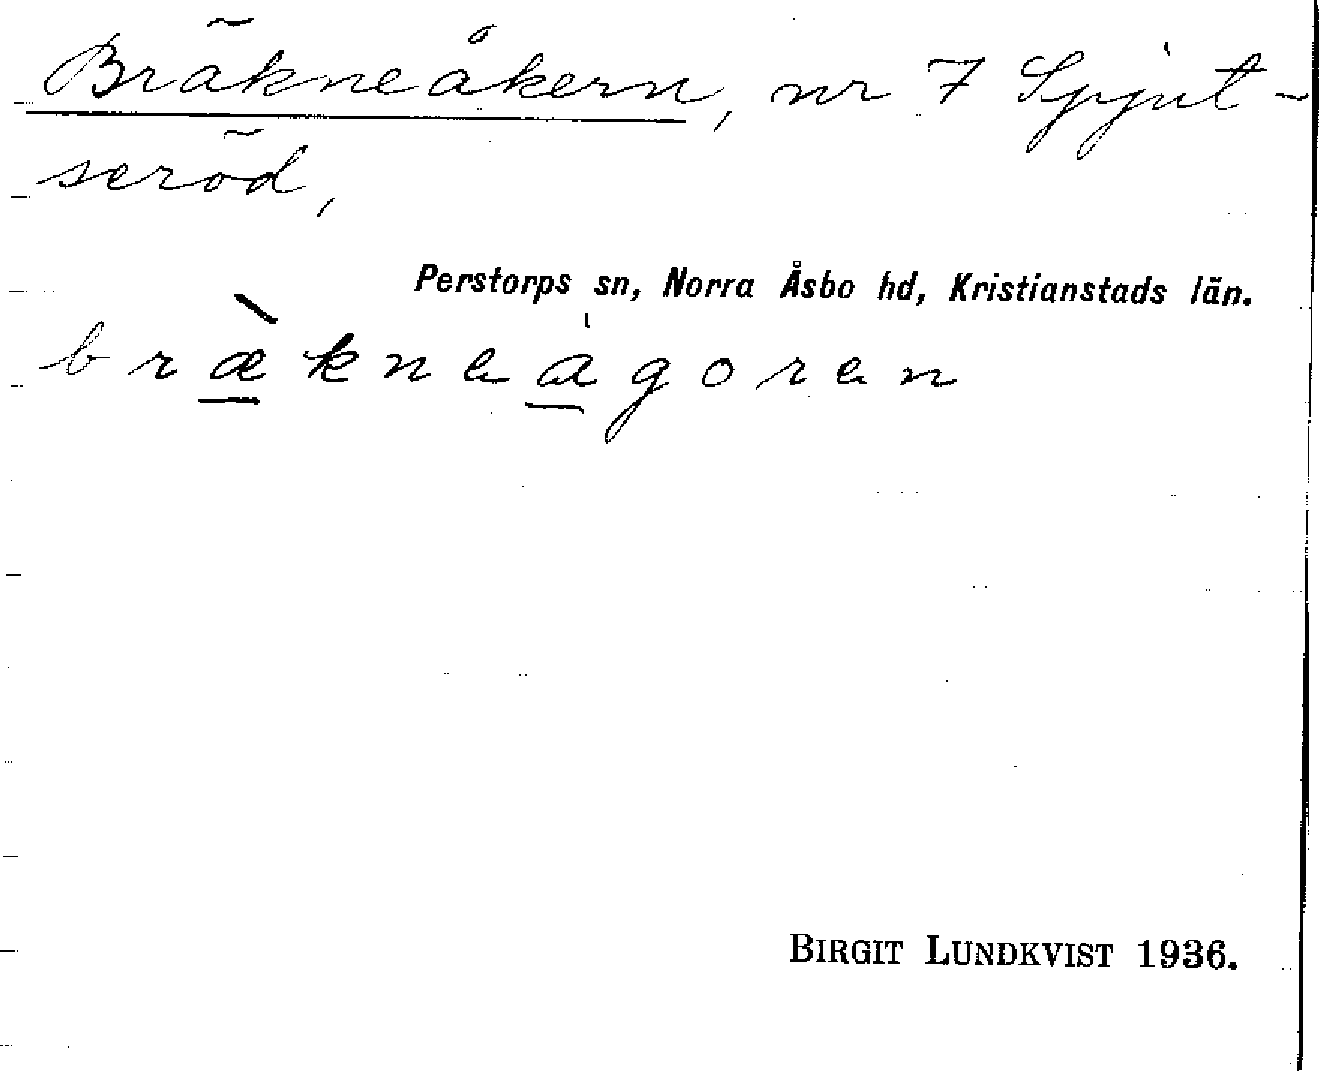 Bräkneåkern, nr 7 Spjut-
seröd,
Perstorps sn, Norra Åsbo hd, Kristianstads län.
bræ̱̀knea̱̍goren
BIRGIT LUNDKVIST 1936.